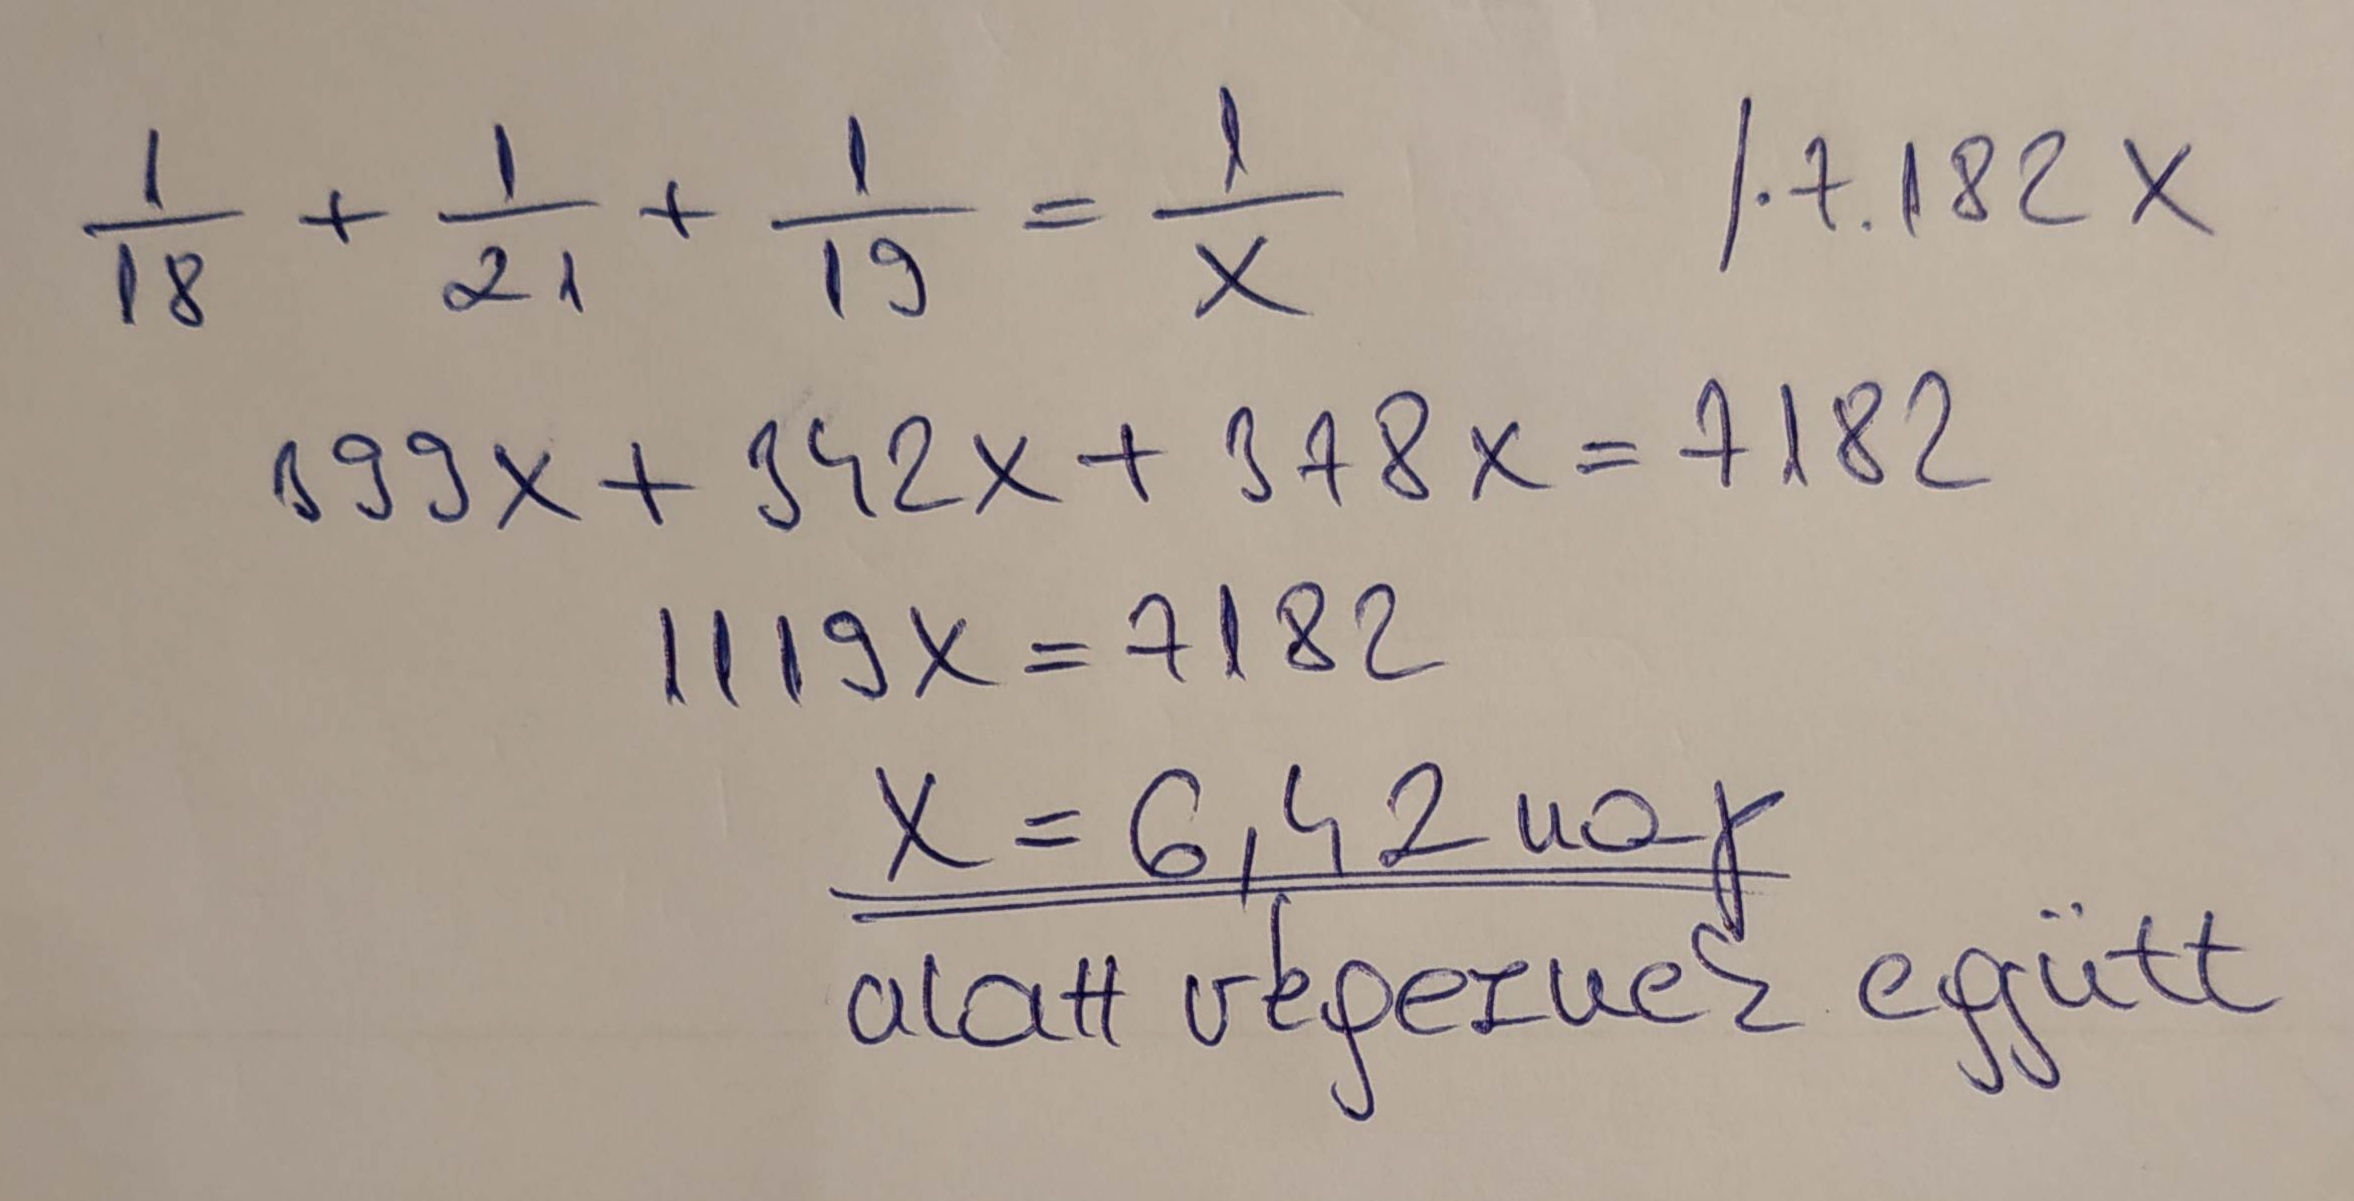 1/18 + 1/21 + 1/19 = 1/x /·7.182x
399x + 342x + 378x = 7182
1119x = 7182
x = 6,42 nap
alatt végeznek együtt